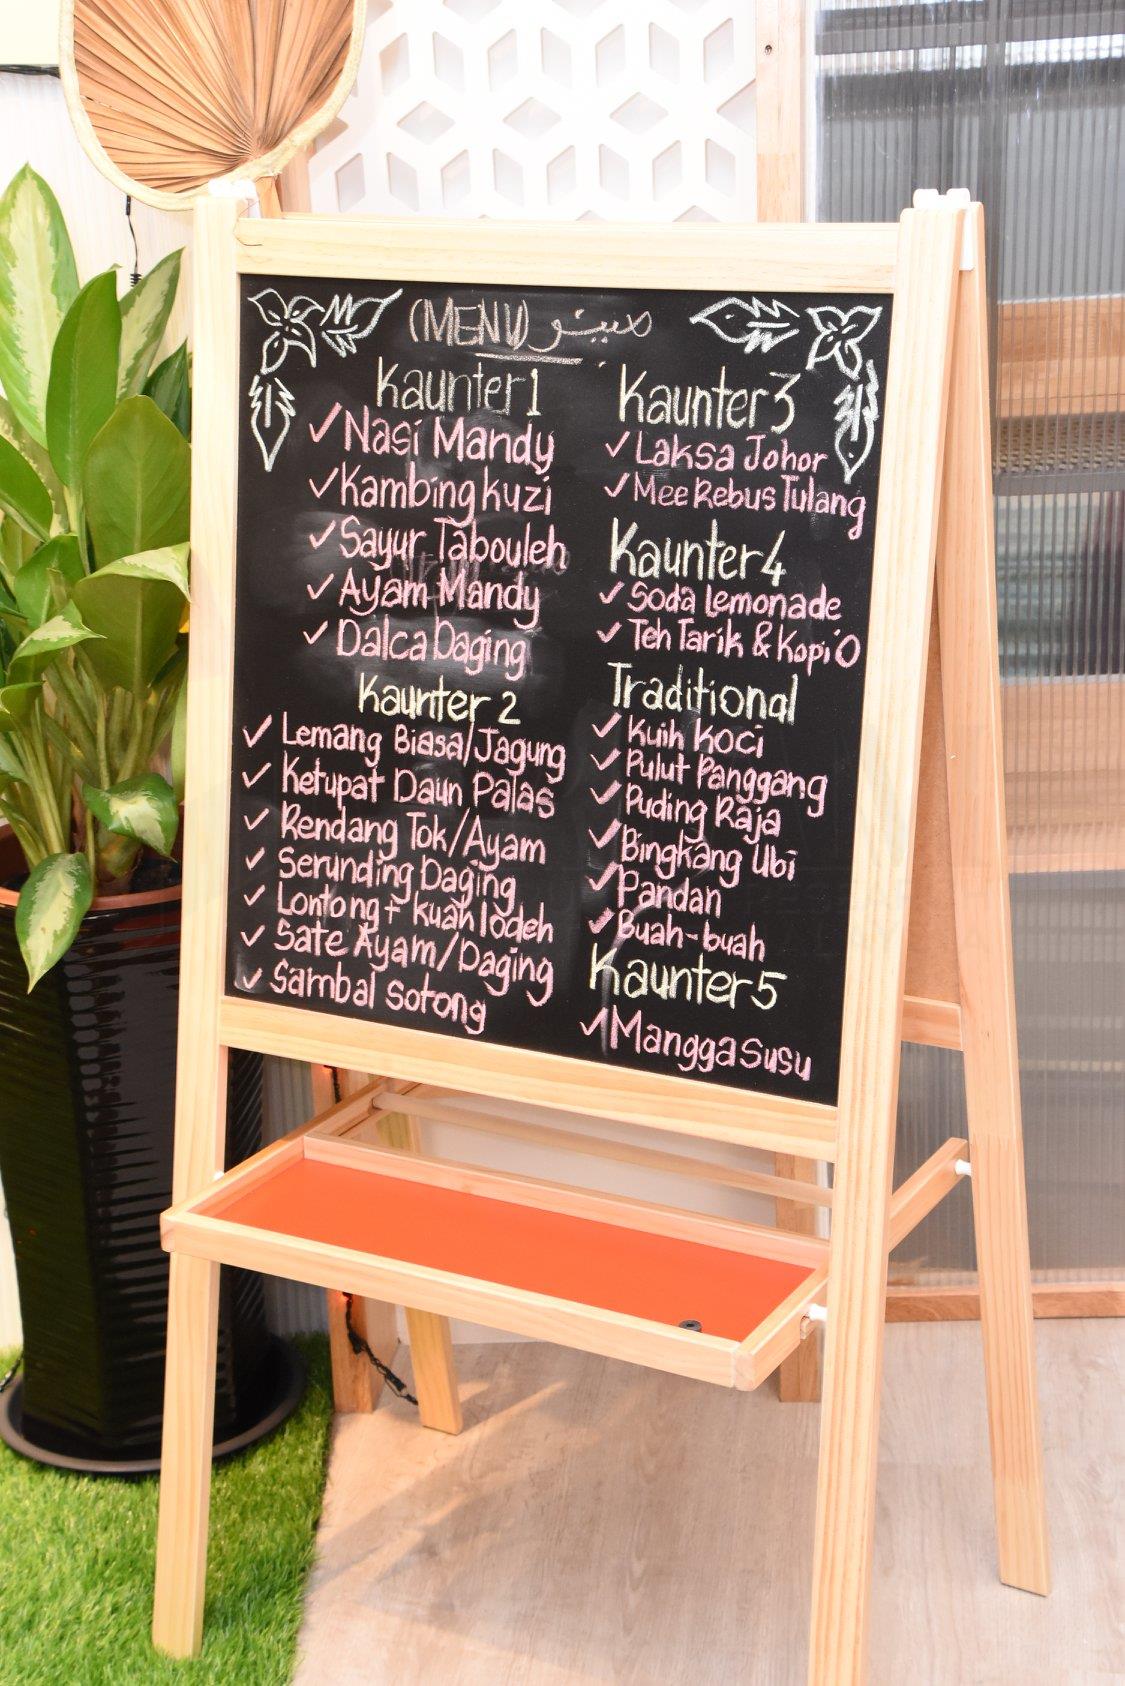 (MENU) مينو
Kaunter 1
✓ Nasi Mandy
✓ Kambing kuzi
✓ Sayur Tabouleh
✓ Ayam Mandy
✓ Dalca Daging
Kaunter 2
✓ Lemang Biasa/Jagung
✓ Ketupat Daun Palas
✓ Rendang Tok/Ayam
✓ Serunding Daging
✓ Lontong + kuah lodeh
✓ Sate Ayam/Daging
✓ Sambal Sotong
Kaunter 3
✓ Laksa Johor
✓ Mee Rebus Tulang
Kaunter 4
✓ Soda Lemonade
✓ Teh Tarik & Kopi O
Traditional
✓ Kuih Koci
✓ Pulut Panggang
✓ Puding Raja
✓ Bingkang Ubi
✓ Pandan
✓ Buah-buah
Kaunter 5
✓ Mangga susu